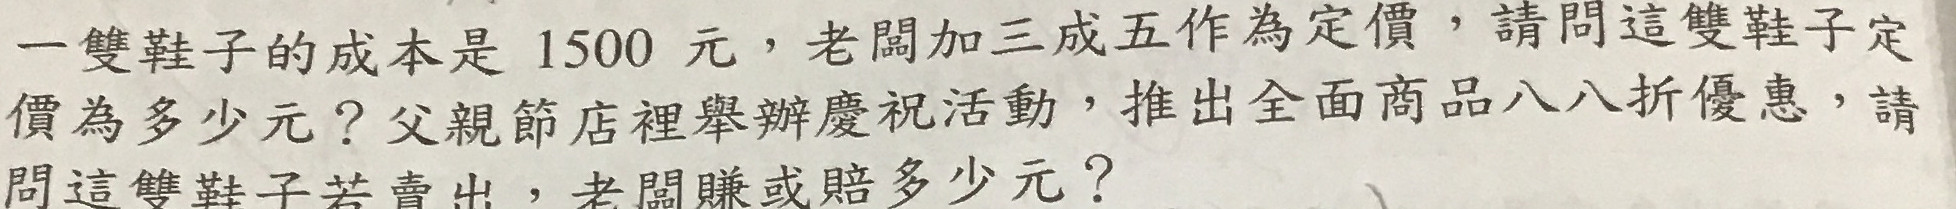 一雙鞋子的成本是 1500 元，老闆加三成五作為定價，請問這雙鞋子定
價為多少元？父親節店裡舉辦慶祝活動，推出全面商品八八折優惠，請
問這雙鞋子若賣出，老闆賺或賠多少元？